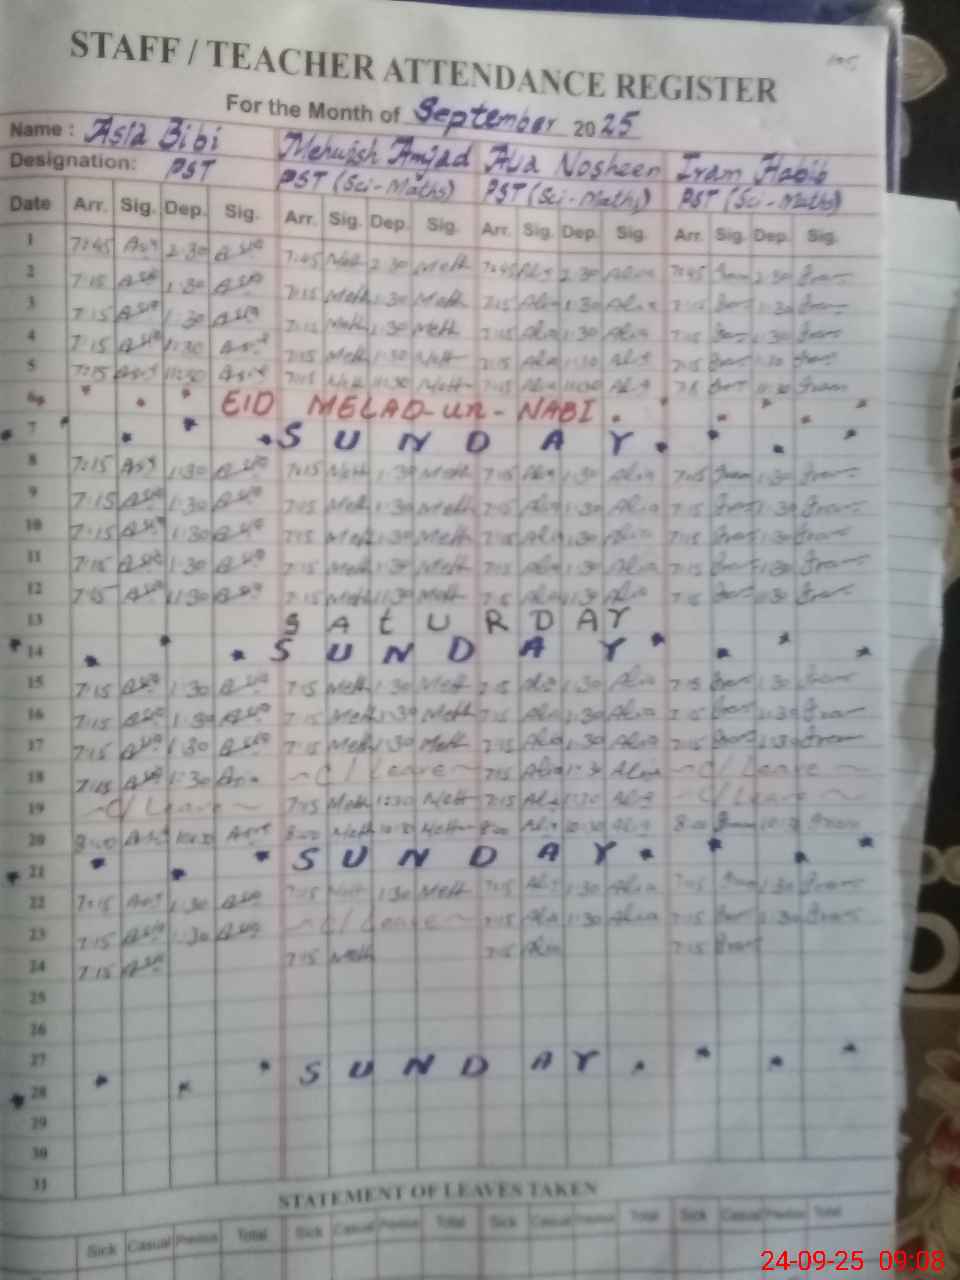 STAFF / TEACHER ATTENDANCE REGISTER
For the Month of September 2025
Name : Asia Bibi Mehwish Amjad Alia Nosheen Iram Habib
Designation: PST PST (Sci-Maths) PST (Sci-Maths) PST (Sci-Maths)
Date Arr. Sig. Dep. Sig. Arr. Sig. Dep. Sig. Arr. Sig. Dep. Sig. Arr. Sig. Dep. Sig.
1 7:45 2:30 7:45 2:30 Meh 7:45 2:30 Alia 7:45 2:30 Iram
2 7:15 1:30 7:15 Meh 1:30 Meh 7:15 Alia 1:30 Alia 7:15 1:30 Iram
3 7:15 1:30 7:15 Meh 1:30 Meh 7:15 Alia 1:30 Alia 7:15 1:30 Iram
4 7:15 1:30 7:15 Meh 1:30 Meh 7:15 Alia 1:30 Alia 7:15 1:30 Iram
5 7:15 11:30 7:15 Meh 11:30 Meh 7:15 Alia 11:30 Alia 11:30 Iram
6 EID MELAD-UR-NABI
7 SUNDAY
8 7:15 1:30 7:15 Meh 1:30 Meh 7:15 Alia 1:30 Alia 7:15 Iram 1:30 Iram
9 7:15 1:30 7:15 Meh 1:30 Meh 7:15 Alia 1:30 Alia 7:15 Iram 1:30 Iram
10 7:15 1:30 7:15 Meh 1:30 Meh 7:15 Alia 1:30 Alia 7:15 Iram 1:30 Iram
11 7:15 1:30 7:15 Meh 1:30 Meh 7:15 Alia 1:30 Alia 7:15 Iram 1:30 Iram
12 7:15 1:30 7:15 Meh 1:30 Meh 7:15 Alia 1:30 Alia 7:15 Iram 1:30 Iram
13 SAtURDAY
14 SUNDAY
15 7:15 1:30 7:15 Meh 1:30 Meh 7:15 Alia 1:30 Alia 7:15 Iram 1:30 Iram
16 7:15 1:30 7:15 Meh 1:30 Meh 7:15 Alia 1:30 Alia 7:15 Iram 1:30 Iram
17 7:15 1:30 7:15 Meh 1:30 Meh 7:15 Alia 1:30 Alia 7:15 Iram 1:30 Iram
18 7:15 1:30 ~C/Leave~ 7:15 Alia 1:30 Alia ~C/Leave~
19 ~C/Leave~ 7:15 Meh 1:30 Meh 7:15 Alia 1:30 Alia ~C/Leave~
20 8:00 10:30 8:00 Meh 10:30 Meh 8:00 Alia 10:30 Alia 8:00 Iram 10:30 Iram
21 SUNDAY
22 7:15 1:30 7:15 Meh 1:30 Meh 7:15 Alia 1:30 Alia 7:15 Iram 1:30 Iram
23 7:15 1:30 ~C/Leave~ 7:15 Alia 1:30 Alia 7:15 Iram 1:30 Iram
24 7:15 7:15 Meh 7:15 Alia 7:15 Iram
25
26
27
28 SUNDAY
29
30
31
STATEMENT OF LEAVES TAKEN
Sick Casual Previous Total Sick Casual Previous Total Sick Casual Previous Total Sick Casual Previous Total
24-09-25 09:08